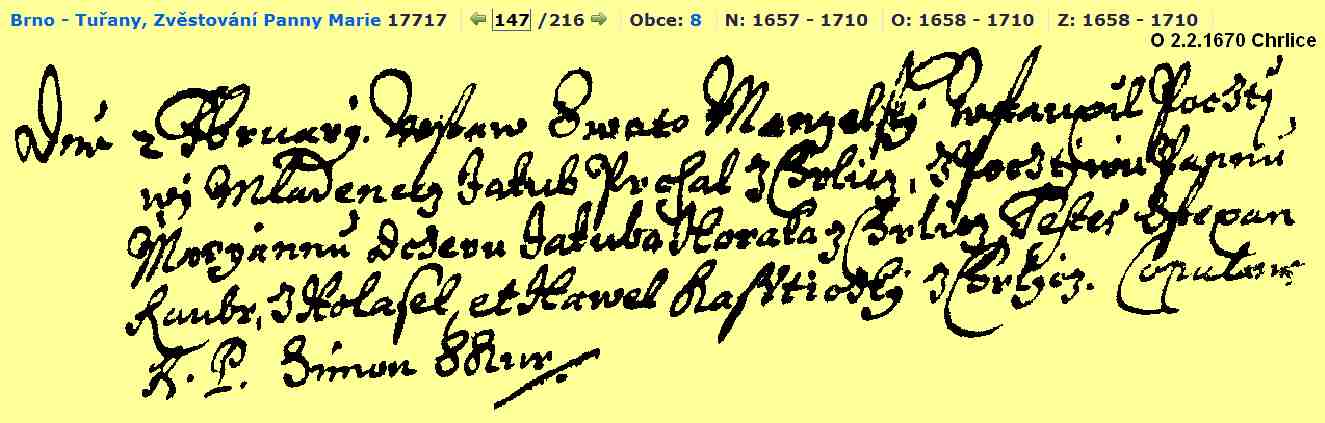 Brno - Tuřany, Zvěstování Panny Marie 17717 147 /216 Obce: 8 N: 1657 - 1710 O: 1658 - 1710 Z: 1658 - 1710
O 2.2.1670 Chrlice
Dnú 2 February. Wstaw Swato Manzelsky wstaupil Pocztj
wj Mladenecz Jakub Prchal z Chrlicz, s Pocztjwu Pannú
Maryánnú dczeru Jakuba Horaka z Chrlicz Testes Sstepan
Kaubr, z Holasek, et Hawel z Chrlicz. Copulans
R. P. Simon